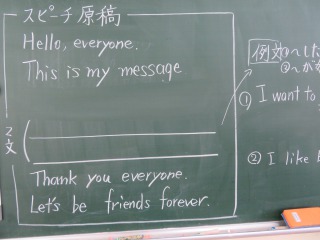 スピーチ原稿
Hello, everyone.
This is my message
2文
Thank you everyone.
Let's be friends forever.
例文
①～した
②～が
① I want to
② I like